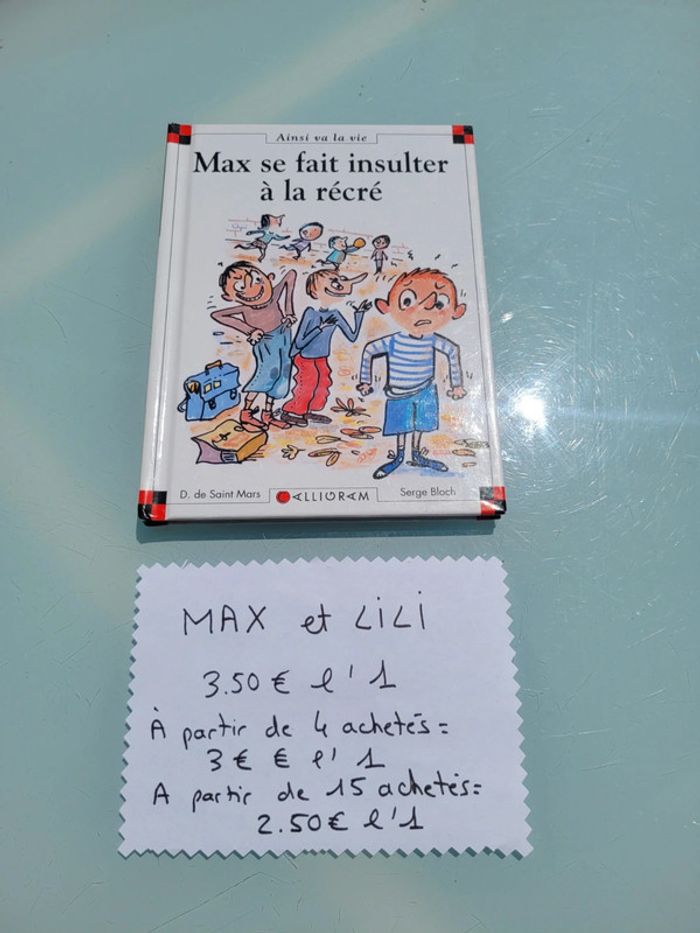 Ainsi va la vie
Max se fait insulter
à la récré
D. de Saint Mars
CALLIGRAM
Serge Bloch
MAX et LiLi
3.50 € l'1
À partir de 4 achetés =
3 € € l'1
A partir de 15 achetés =
2.50€ l'1